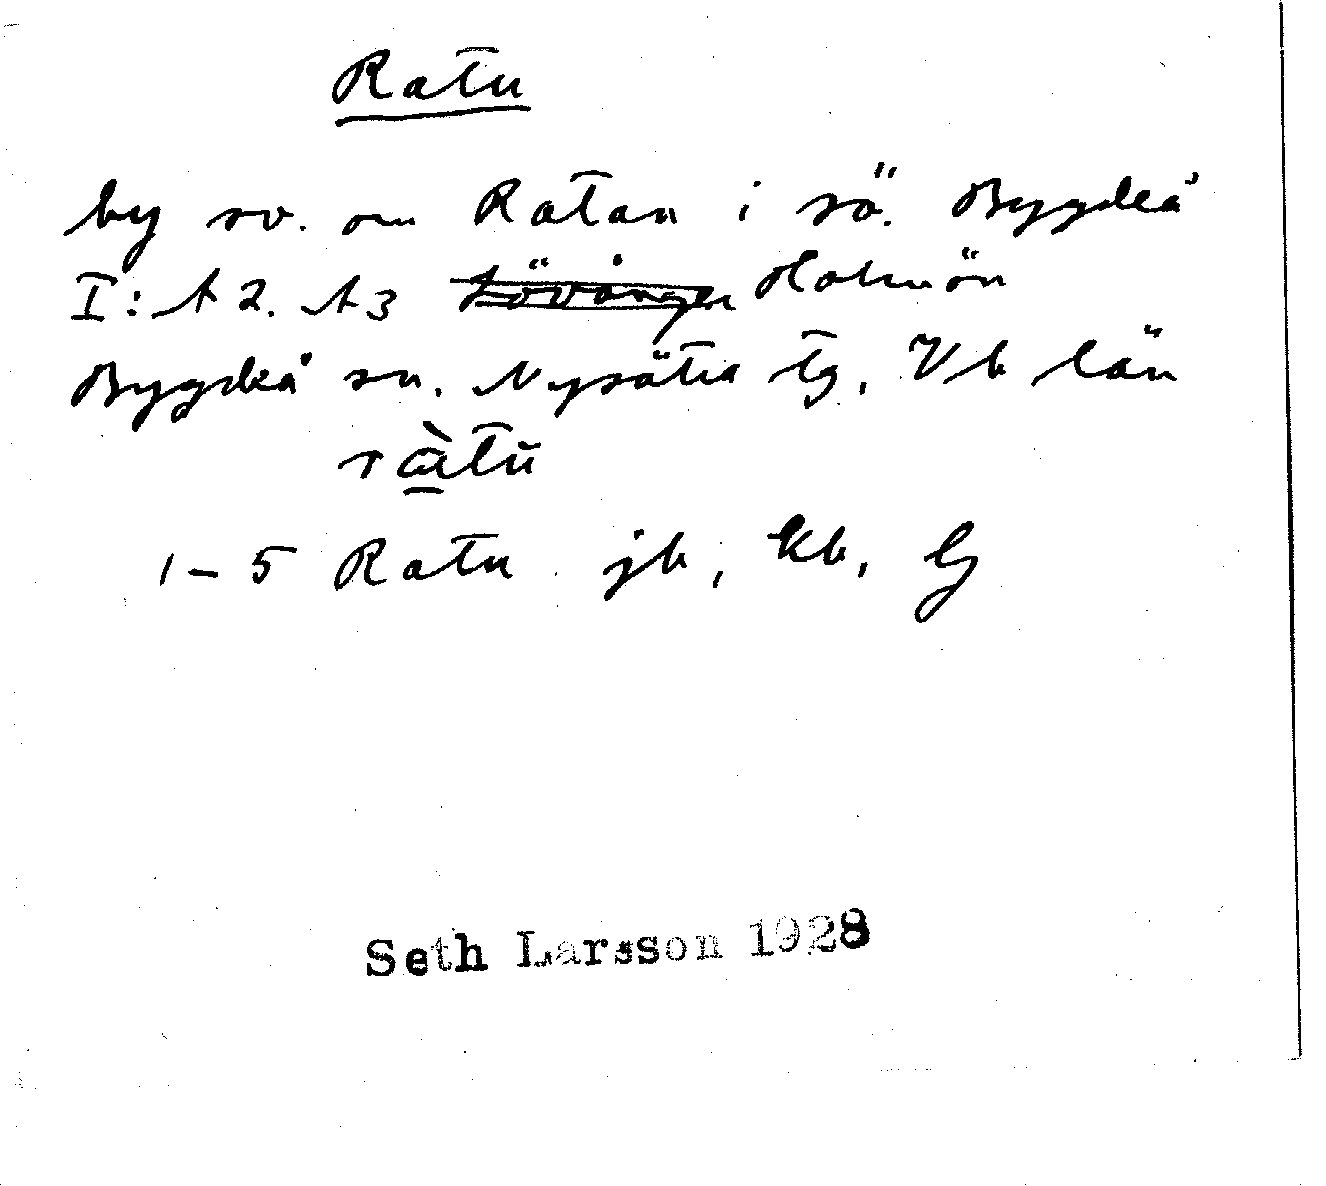 Ratu
by sv. om Ratan i sö. Bygdeå
I: A2. A3 Lövånger Holmön
Bygdeå sn. Nysätra tg, Vb län
ràtu
1-5 Ratu jb, kb, Gj
Seth Larsson 1928